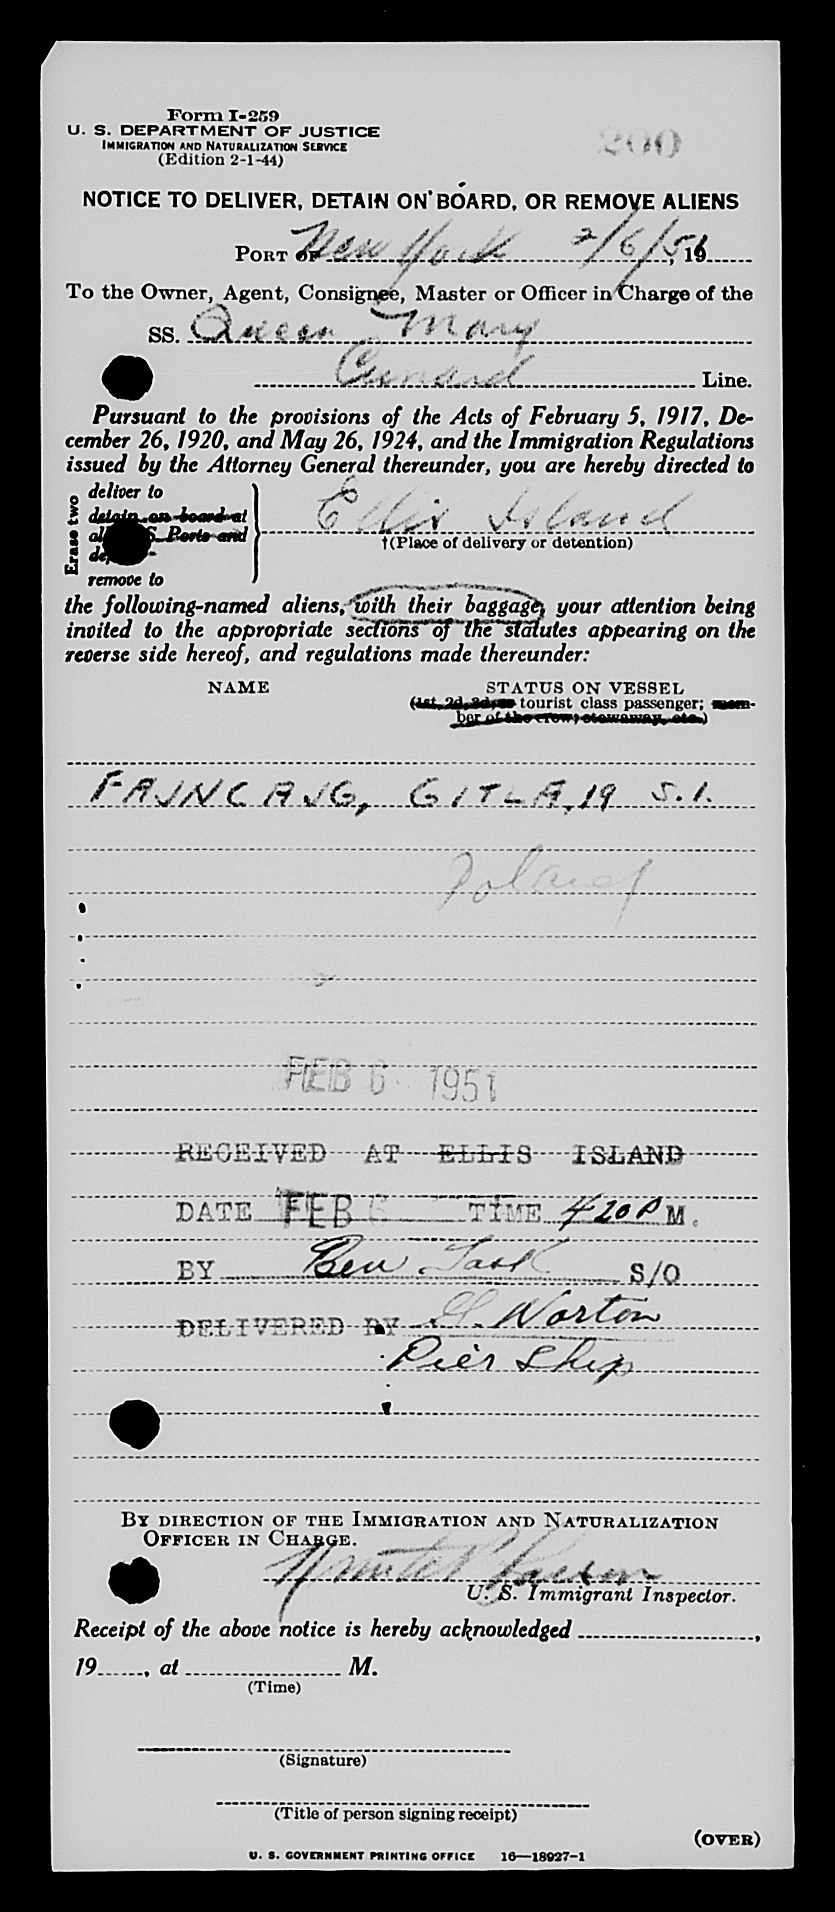 Form I-259
U. S. DEPARTMENT OF JUSTICE
IMMIGRATION AND NATURALIZATION SERVICE
(Edition 2-1-44)
200
NOTICE TO DELIVER, DETAIN ON BOARD, OR REMOVE ALIENS
PORT OF New York 2/6/51, 19
To the Owner, Agent, Consignee, Master or Officer in Charge of the
SS. Queen Mary
Cunard Line.
Pursuant to the provisions of the Acts of February 5, 1917, De-
cember 26, 1920, and May 26, 1924, and the Immigration Regulations
issued by the Attorney General thereunder, you are hereby directed to
Erase two
deliver to
detain on board at
all U. S. Ports and
remove to
Ellis Island
†(Place of delivery or detention)
the following-named aliens, with their baggage, your attention being
invited to the appropriate sections of the statutes appearing on the
reverse side hereof, and regulations made thereunder:
NAME STATUS ON VESSEL
(1st, 2d, 3d, or tourist class passenger; mem-
ber of the crew; stowaway, etc.)
FAJNCAJG, GITLA, 19 S.I.
Poland
FEB 6 1951
RECEIVED AT ELLIS ISLAND
DATE FEB 6 TIME 420 P M.
BY Ben S/O
DELIVERED BY Worton
Pier Ship
BY DIRECTION OF THE IMMIGRATION AND NATURALIZATION
OFFICER IN CHARGE.
U. S. Immigrant Inspector.
Receipt of the above notice is hereby acknowledged ,
19 , at M.
(Time)
(Signature)
(Title of person signing receipt)
(OVER)
U. S. GOVERNMENT PRINTING OFFICE 16—18927-1